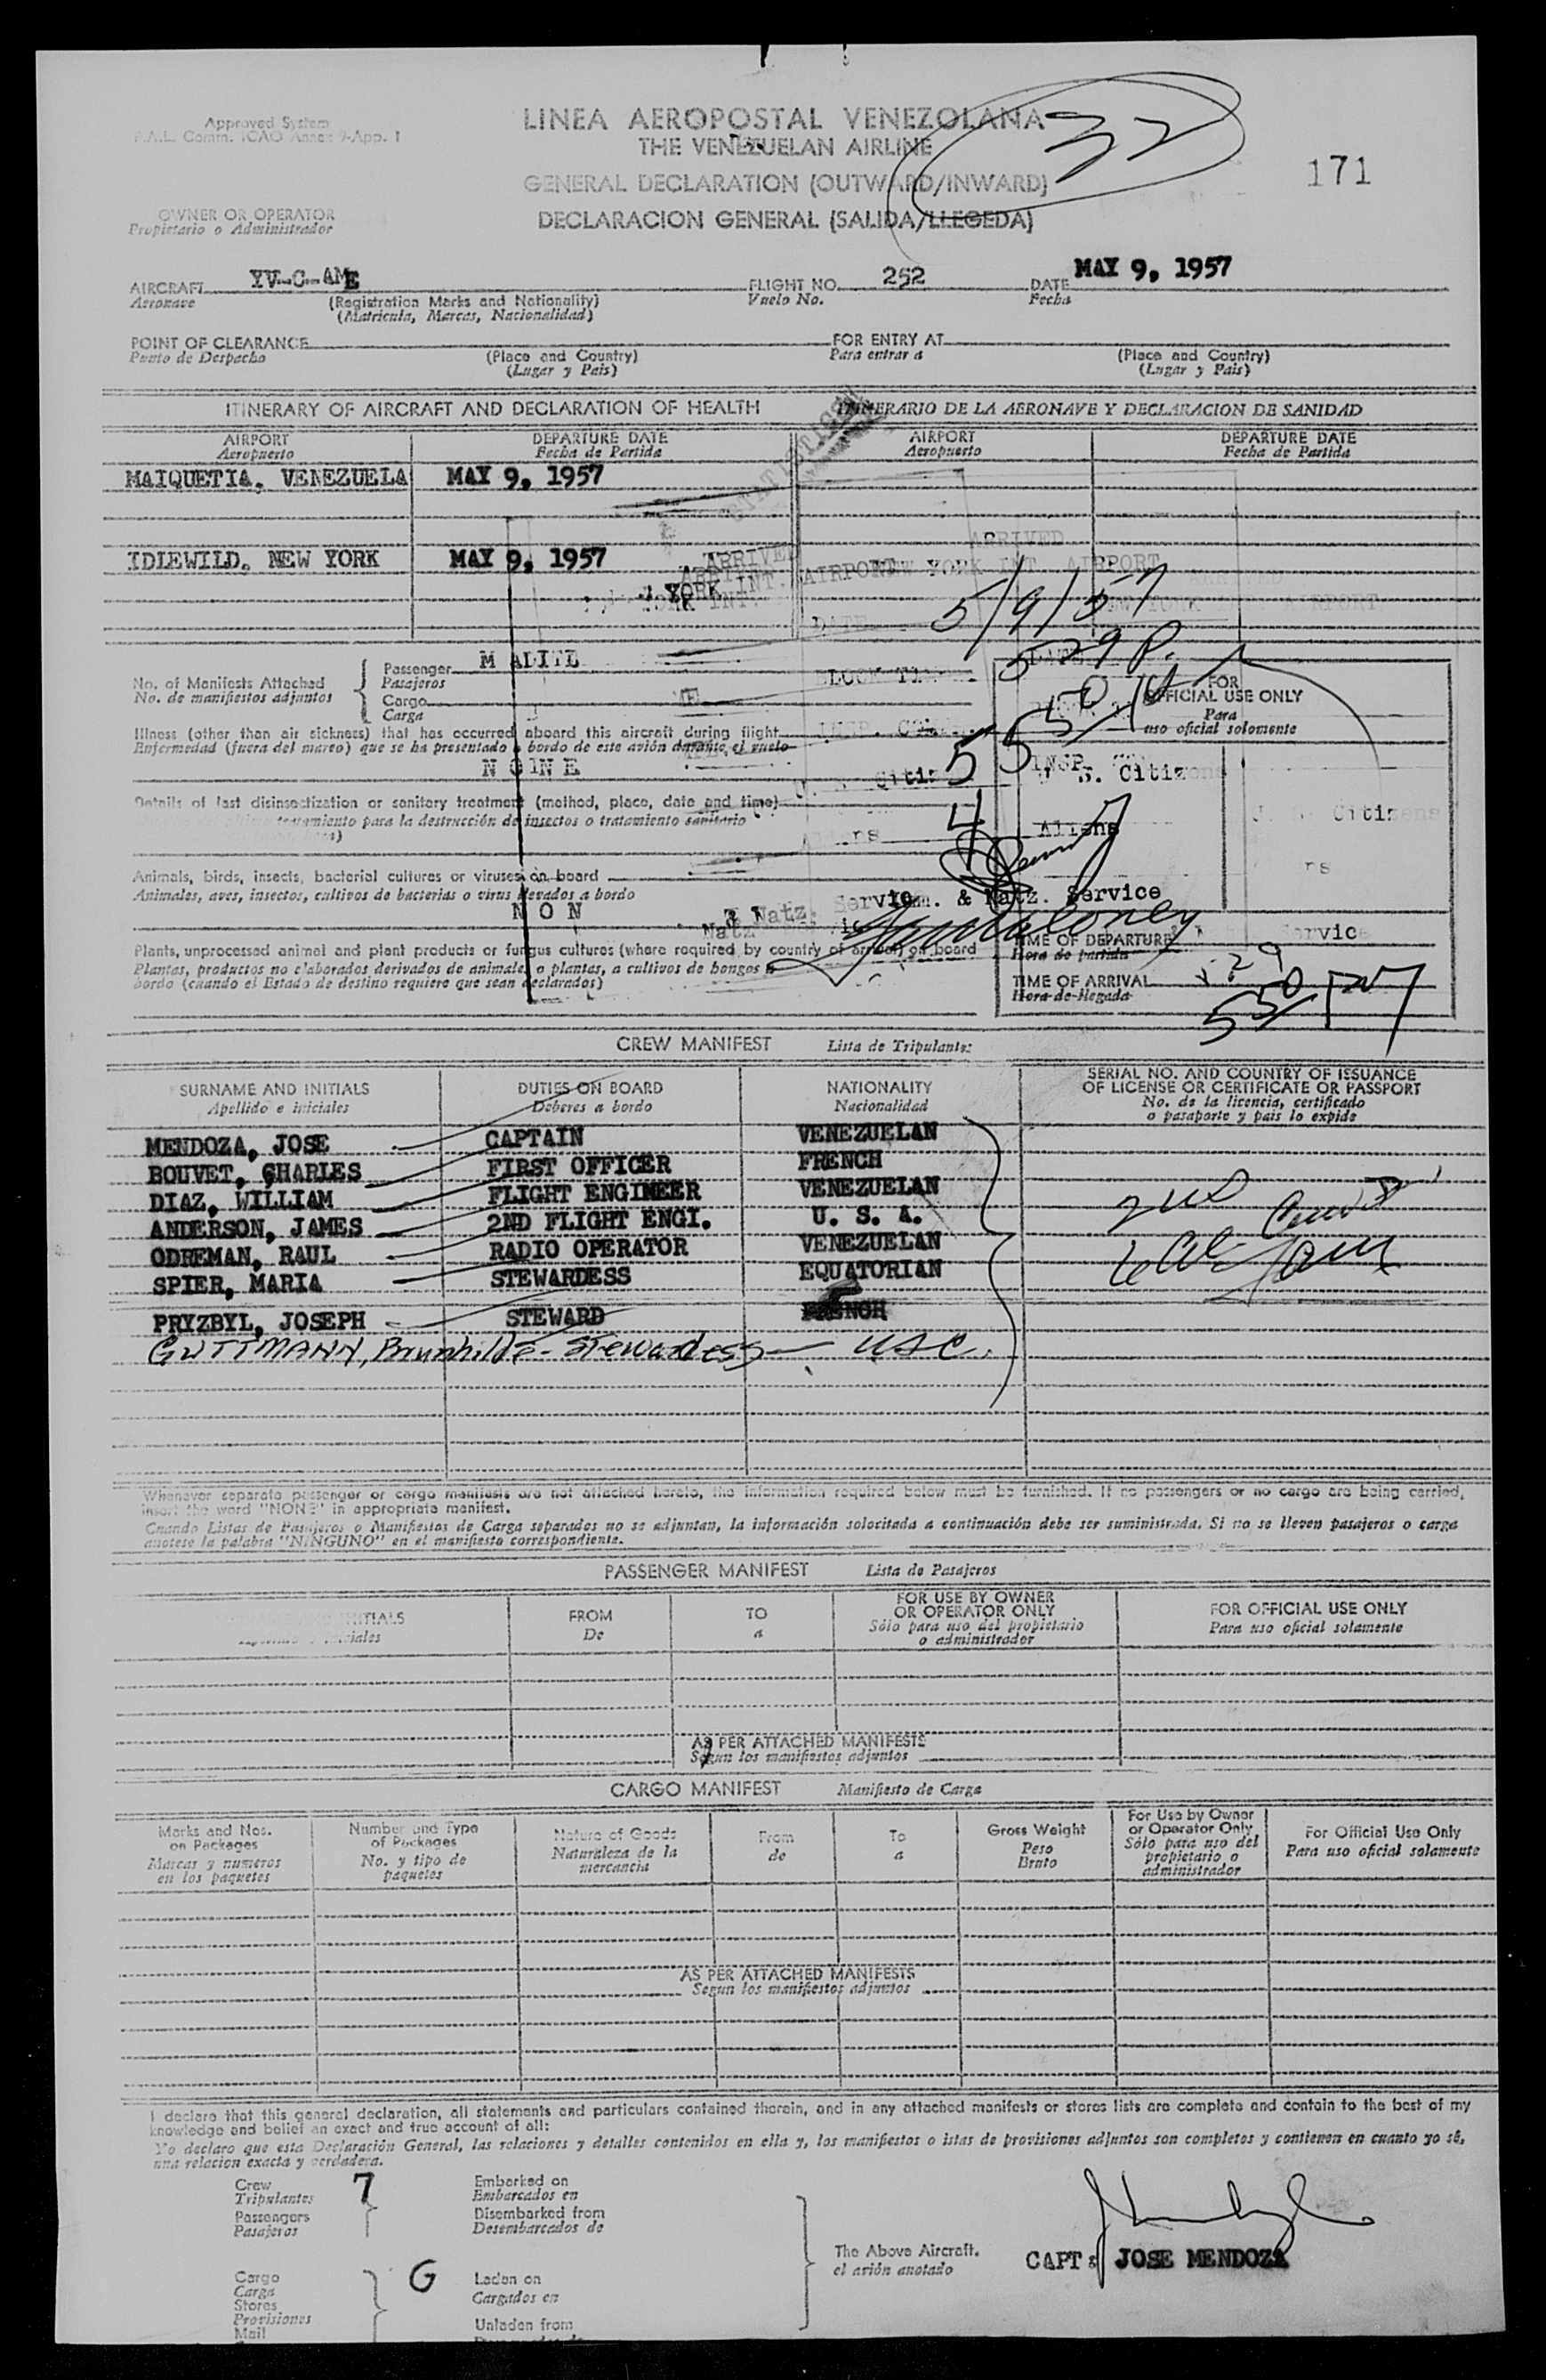 Approved System
LINEA AEROPOSTAL VENEZOLANA
32
P.A.L. Comm. ICAO Annex 9-App. 1
THE VENEZUELAN AIRLINE
171
GENERAL DECLARATION (OUTWARD/INWARD)
OWNER OR OPERATOR
Propietario o Administrador
DECLARACION GENERAL (SALIDA/LLEGEDA)
AIRCRAFT YV-C-AME FLIGHT NO. 252 DATE MAY 9, 1957
Aeronave (Registration Marks and Nationality) Vuelo No. Fecha
(Matricula, Marcas, Nacionalidad)
POINT OF CLEARANCE FOR ENTRY AT
Punto de Despacho (Place and Country) Para entrar a (Place and Country)
(Lugar y Pais) (Lugar y Pais)
ITINERARY OF AIRCRAFT AND DECLARATION OF HEALTH ITINERARIO DE LA AERONAVE Y DECLARACION DE SANIDAD
AIRPORT DEPARTURE DATE AIRPORT DEPARTURE DATE
Aeropuerto Fecha de Partida Aeropuerto Fecha de Partida
MAIQUETIA, VENEZUELA MAY 9, 1957
IDLEWILD, NEW YORK MAY 9, 1957
ARRIVED
NEW YORK INT. AIRPORT
DATE 5/9/57
529 P.
No. of Manifests Attached
No. de manifiestos adjuntos
Passenger
Pasajeros
Cargo
Carga
FOR
OFFICIAL USE ONLY
Para
uso oficial solomente
Illness (other than air sickness) that has occurred aboard this aircraft during flight
Enfermedad (fuera del mareo) que se ha presentado a bordo de este avión durante el vuelo
NONE
U. S. Citizens
5
Details of last disinsectization or sanitary treatment (method, place, date and time)
tratamiento para la destrucción de insectos o tratamiento sanitario
Aliens
4
Animals, birds, insects, bacterial cultures or viruses on board
Animales, aves, insectos, cultivos de bacterias o virus llevados a bordo
NON
& Natz. Service
Plants, unprocessed animal and plant products or fungus cultures (where required by country of arrival) on board
Plantas, productos no elaborados derivados de animales o plantas, a cultivos de hongos a
bordo (cuando el Estado de destino requiere que sean declarados)
TIME OF DEPARTURE
Hora de partida
TIME OF ARRIVAL
Hora de llegada
550 PM
CREW MANIFEST Lista de Tripulantes
SURNAME AND INITIALS DUTIES ON BOARD NATIONALITY SERIAL NO. AND COUNTRY OF ISSUANCE
OF LICENSE OR CERTIFICATE OR PASSPORT
Apellido e iniciales Deberes a bordo Nacionalidad No. de la licencia, certificado
o pasaporte y pais lo expide
MENDOZA, JOSE CAPTAIN VENEZUELAN
BOUVET, CHARLES FIRST OFFICER FRENCH
DIAZ, WILLIAM FLIGHT ENGINEER VENEZUELAN
ANDERSON, JAMES 2ND FLIGHT ENGI. U. S. A.
ODREMAN, RAUL RADIO OPERATOR VENEZUELAN
SPIER, MARIA STEWARDESS EQUATORIAN
PRYZBYL, JOSEPH STEWARD FRENCH
GUTTMANN, Brunhilde - Stewardess - USC.
Whenever separate passenger or cargo manifests are not attached hereto, the information required below must be furnished. If no passengers or no cargo are being carried,
insert the word "NONE" in appropriate manifest.
Cuando Listas de Pasajeros o Manifiestos de Carga separados no se adjuntan, la información solocitada a continuación debe ser suministrada. Si no se lleven pasajeros o carga
anotese la palabra "NINGUNO" en el manifiesto correspondiente.
PASSENGER MANIFEST Lista de Pasajeros
INITIALS FROM TO FOR USE BY OWNER
OR OPERATOR ONLY FOR OFFICIAL USE ONLY
iniciales De a Sólo para uso del propietario
o administrador Para uso oficial solamente
AS PER ATTACHED MANIFESTS
Segun los manifiestos adjuntos
CARGO MANIFEST Manifiesto de Carga
Marks and Nos.
on Packages
Marcas y numeros
en los paquetes
Number and Type
of Packages
No. y tipo de
paquetes
Nature of Goods
Naturaleza de la
mercancia
From
de
To
a
Gross Weight
Peso
Bruto
For Use by Owner
or Operator Only
Sólo para uso del
propietario o
administrador
For Official Use Only
Para uso oficial solamente
AS PER ATTACHED MANIFESTS
Segun los manifiestos adjuntos
I declare that this general declaration, all statements and particulars contained therein, and in any attached manifests or stores lists are complete and contain to the best of my
knowledge and belief an exact and true account of all:
Yo declaro que esta Declaración General, las relaciones y detalles contenidos en ella y, los manifiestos o istas de provisiones adjuntos son completos y contienen en cuanto yo sé,
una relacion exacta y verdadera.
Crew 7
Tripulantes
Passengers
Pasajeros
Embarked on
Embarcados en
Disembarked from
Desembarcados de
Cargo G
Carga
Stores
Provisiones
Mail
Laden on
Cargados en
Unladen from
The Above Aircraft.
el avión anotado
CAPT: JOSE MENDOZA